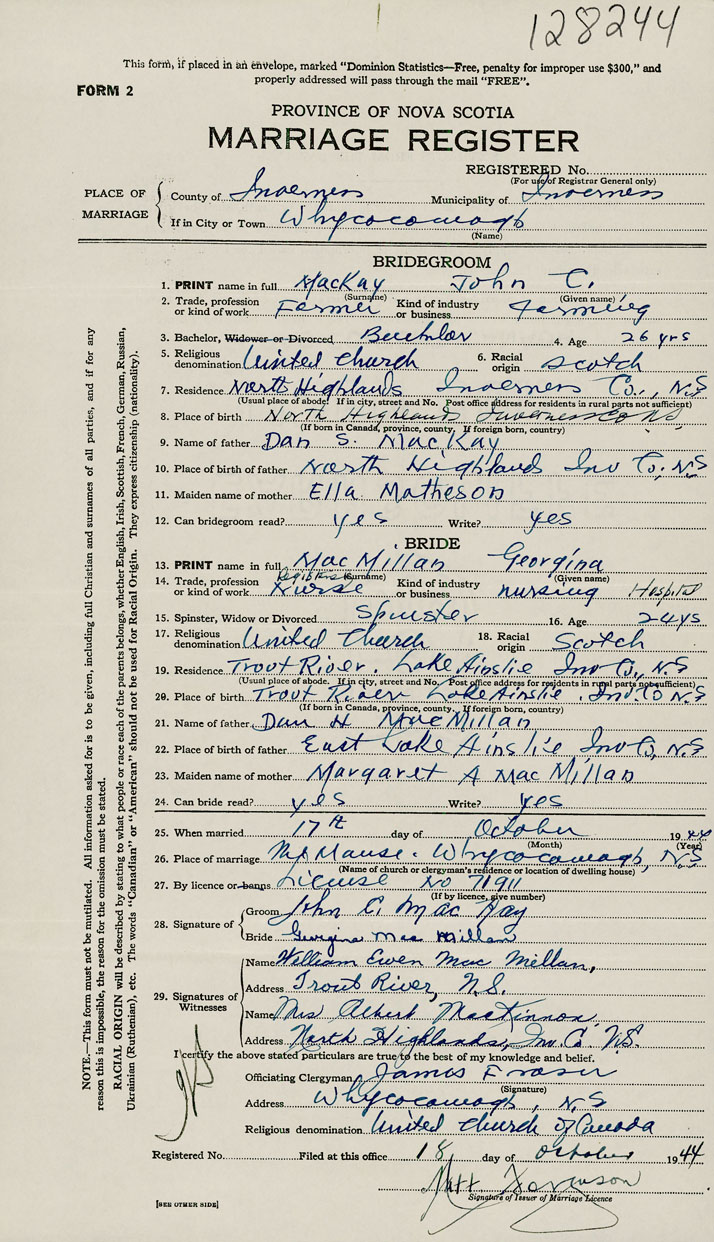 128244
This form, if placed in an envelope, marked "Dominion Statistics—Free, penalty for improper use $300," and
properly addressed will pass through the mail "FREE".
FORM 2
PROVINCE OF NOVA SCOTIA
MARRIAGE REGISTER
REGISTERED No.
(For use of Registrar General only)
PLACE OF MARRIAGE
County of Inverness Municipality of Inverness
If in City or Town Whycocomagh
(Name)
BRIDEGROOM
1. PRINT name in full MacKay John C.
(Surname) (Given name)
2. Trade, profession or kind of work Farmer Kind of industry or business Farming
3. Bachelor, Widower or Divorced Bachelor 4. Age 26 yrs
5. Religious denomination United Church 6. Racial origin Scotch
7. Residence North Highlands Inverness Co., N.S
(Usual place of abode. If in city, street and No. Post office address for residents in rural parts not sufficient)
8. Place of birth North Highlands Inverness Co NS
(If born in Canada, province, county. If foreign born, country)
9. Name of father Dan S. MacKay
10. Place of birth of father North Highlands Inv Co. NS
11. Maiden name of mother Ella Matheson
12. Can bridegroom read? yes Write? yes
BRIDE
13. PRINT name in full MacMillan Georgina
(Surname) (Given name)
14. Trade, profession or kind of work Registered Nurse Kind of industry or business nursing Hospital
15. Spinster, Widow or Divorced Spinster 16. Age 24 yrs
17. Religious denomination United Church 18. Racial origin Scotch
19. Residence Trout River. Lake Ainslie Inv Co, N.S
(Usual place of abode. If in city, street and No. Post office address for residents in rural parts not sufficient)
20. Place of birth Trout River Lake Ainslie. Inv. Co N.S
(If born in Canada, province, county. If foreign born, country)
21. Name of father Dan H MacMillan
22. Place of birth of father East Lake Ainslie Inv Co, N.S
23. Maiden name of mother Margaret A MacMillan
24. Can bride read? yes Write? yes
25. When married 17th day of October 1944
(Month) (Year)
26. Place of marriage The Manse. Whycocomagh, N.S
(Name of church or clergyman's residence or location of dwelling house)
27. By licence or banns License No 71911
(If by licence, give number)
28. Signature of
Groom John C. MacKay
Bride Georgina MacMillan
29. Signatures of Witnesses
Name William Ewen MacMillan,
Address Trout River, N.S.
Name Mrs Albert MacKinnon
Address North Highlands, Inv. Co. N.S.
I certify the above stated particulars are true to the best of my knowledge and belief.
Officiating Clergyman James Fraser
(Signature)
Address Whycocomagh, N.S
Religious denomination United Church of Canada
Registered No. Filed at this office 18 day of October 1944
Signature of Issuer of Marriage Licence
[SEE OTHER SIDE]
NOTE.—This form must not be mutilated. All information asked for is to be given, including full Christian and surnames of all parties, and if for any
reason this is impossible, the reason for the omission must be stated.
RACIAL ORIGIN will be described by stating to what people or race each of the parents belongs, whether English, Irish, Scottish, French, German, Russian,
Ukrainian (Ruthenian), etc. The words "Canadian" or "American" should not be used for Racial Origin. They express citizenship (nationality).